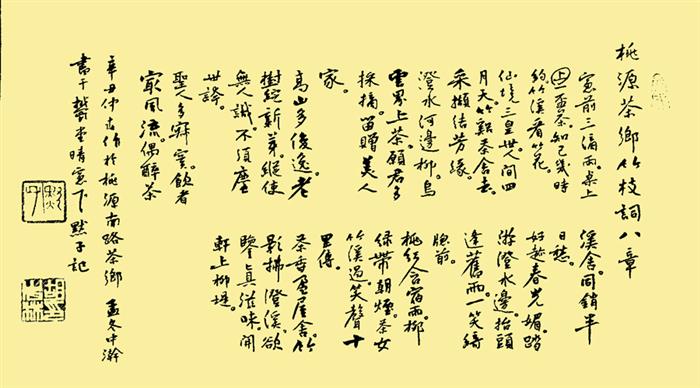 桃源茶鄉竹枝詞八章
窗前三滴雨。桌上
上一壺茶。知己幾時
約。竹溪看竹花。
仙境三皇世。人间四
月天。竹谿茶舍去。
采擷结芳缘。
澄水河邊柳。烏
雲界上茶。願君多
採摘。留贈美人
家。
高山多俊逸。老
樹綻新芽。縱使
無人識。不須塵
世誇。
聖人多寂寞飲者
最風流。偶醉茶
溪舍。同銷半
日愁。
好趁春光媚。踏
遊澄水邊。抬頭
逢舊雨。一笑綺
窗前。
桃紅含宿雨。柳
绿帶朝煙。茶女
竹溪過。笑聲十
里傳。
茶香盈屋舍。竹
影拂澄溪。欲
鑒真滋味。開
軒上柳堤。
辛丑仲春作於桃源南路茶鄉 孟冬中澣
書于堂晴窗下默子記